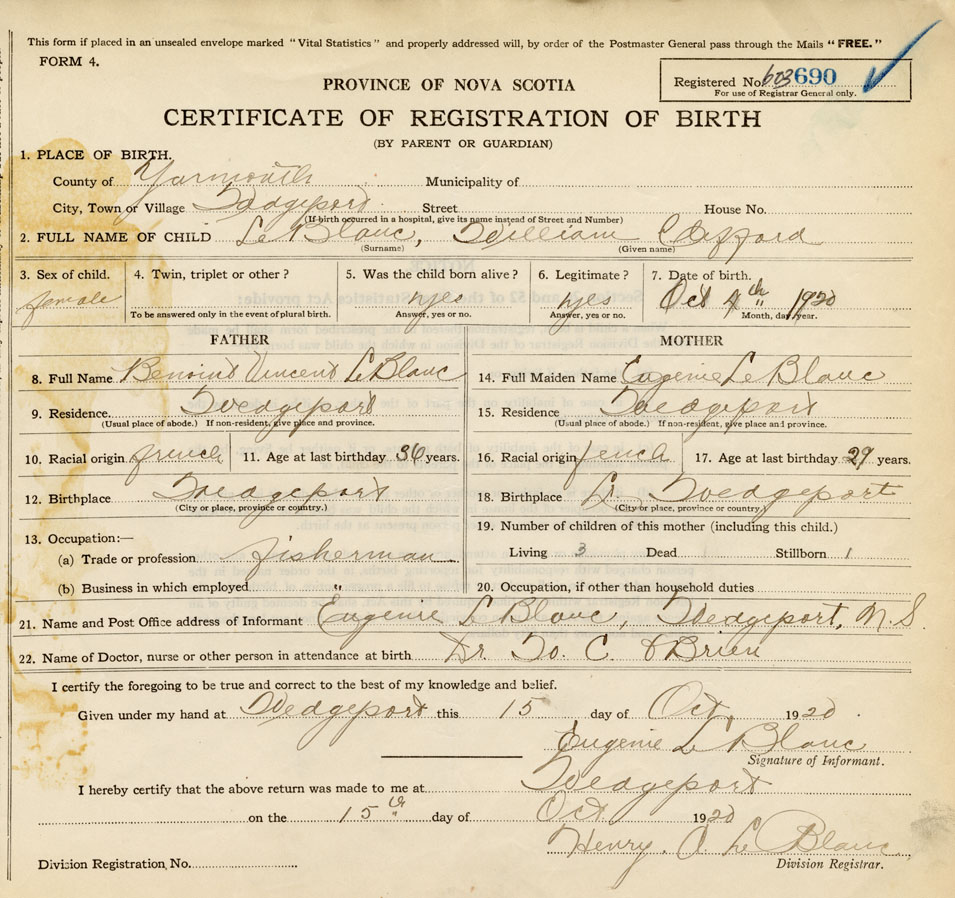 This form if placed in an unsealed envelope marked "Vital Statistics" and properly addressed will, by order of the Postmaster General pass through the Mails "FREE."
FORM 4.
PROVINCE OF NOVA SCOTIA
Registered No. 603690
For use of Registrar General only.
CERTIFICATE OF REGISTRATION OF BIRTH
(BY PARENT OR GUARDIAN)
1. PLACE OF BIRTH.
County of Yarmouth Municipality of
City, Town or Village Wedgeport Street House No.
(If birth occurred in a hospital, give its name instead of Street and Number)
2. FULL NAME OF CHILD Le Blanc, William Clifford
(Surname) (Given name)
3. Sex of child. 4. Twin, triplet or other? 5. Was the child born alive? 6. Legitimate? 7. Date of birth.
female yes yes Oct 4th 1920
To be answered only in the event of plural birth. Answer, yes or no. Answer, yes or no. Month, day, year.
FATHER MOTHER
8. Full Name Vincent Le Blanc 14. Full Maiden Name Eugenie Le Blanc
9. Residence. Wedgeport 15. Residence Wedgeport
(Usual place of abode.) If non-resident, give place and province. (Usual place of abode.) If non-resident, give place and province.
10. Racial origin french 11. Age at last birthday 36 years. 16. Racial origin fench 17. Age at last birthday 29 years.
12. Birthplace Wedgeport 18. Birthplace Wedgeport
(City or place, province or country.) (City or place, province or country.)
13. Occupation:— 19. Number of children of this mother (including this child.)
(a) Trade or profession fisherman Living 3 Dead Stillborn 1
(b) Business in which employed " 20. Occupation, if other than household duties
21. Name and Post Office address of Informant Eugenie Le Blanc, Wedgeport, N.S.
22. Name of Doctor, nurse or other person in attendance at birth Dr. W. C. O'Brien
I certify the foregoing to be true and correct to the best of my knowledge and belief.
Given under my hand at Wedgeport this 15 day of Oct. 1920
Eugenie Le Blanc
Signature of Informant.
I hereby certify that the above return was made to me at Wedgeport
on the 15th day of Oct 1920
Henry. A. Le Blanc
Division Registration No. Division Registrar.